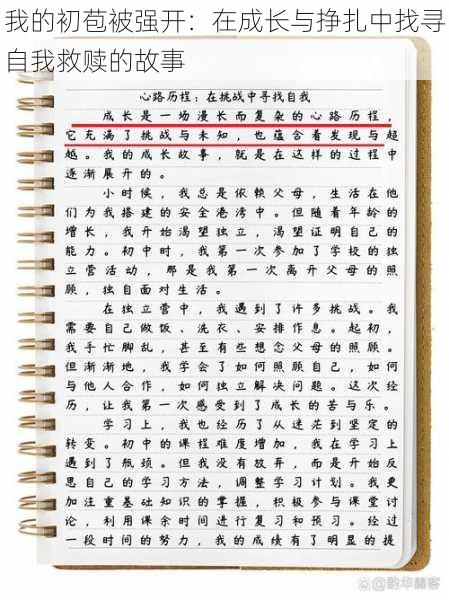 我的初苞被强开：在成长与挣扎中找寻
自我救赎的故事
心路历程：在挑战中寻找自我
成长是一场漫长而复杂的心路历程，
它充满了挑战与未知，也蕴含着发现与超
越。我的成长故事，就是在这样的过程中
逐渐展开的。
小时候，我总是依赖父母，生活在他
们为我搭建的安全港湾中。但随着年龄的
增长，我开始渴望独立，渴望证明自己的
能力。初中时，我第一次参加了学校的独
立营活动，那是我第一次离开父母的照
顾，独自面对生活。
在独立营中，我遇到了许多挑战。我
需要自己做饭、洗衣、安排作息。起初，
我手忙脚乱，甚至有些想念父母的照顾。
但渐渐地，我学会了如何照顾自己，如何
与他人合作，如何独立解决问题。这次经
历，让我第一次感受到了成长的苦与乐。
学习上，我也经历了从迷茫到坚定的
转变。初中的课程难度增加，我在学习上
遇到了瓶颈。但我没有放弃，而是开始反
思自己的学习方法，调整学习计划。我更
加注重基础知识的掌握，积极参与课堂讨
论，利用课余时间进行复习和预习。经过
一段时间的努力，我的成绩有了明显的提